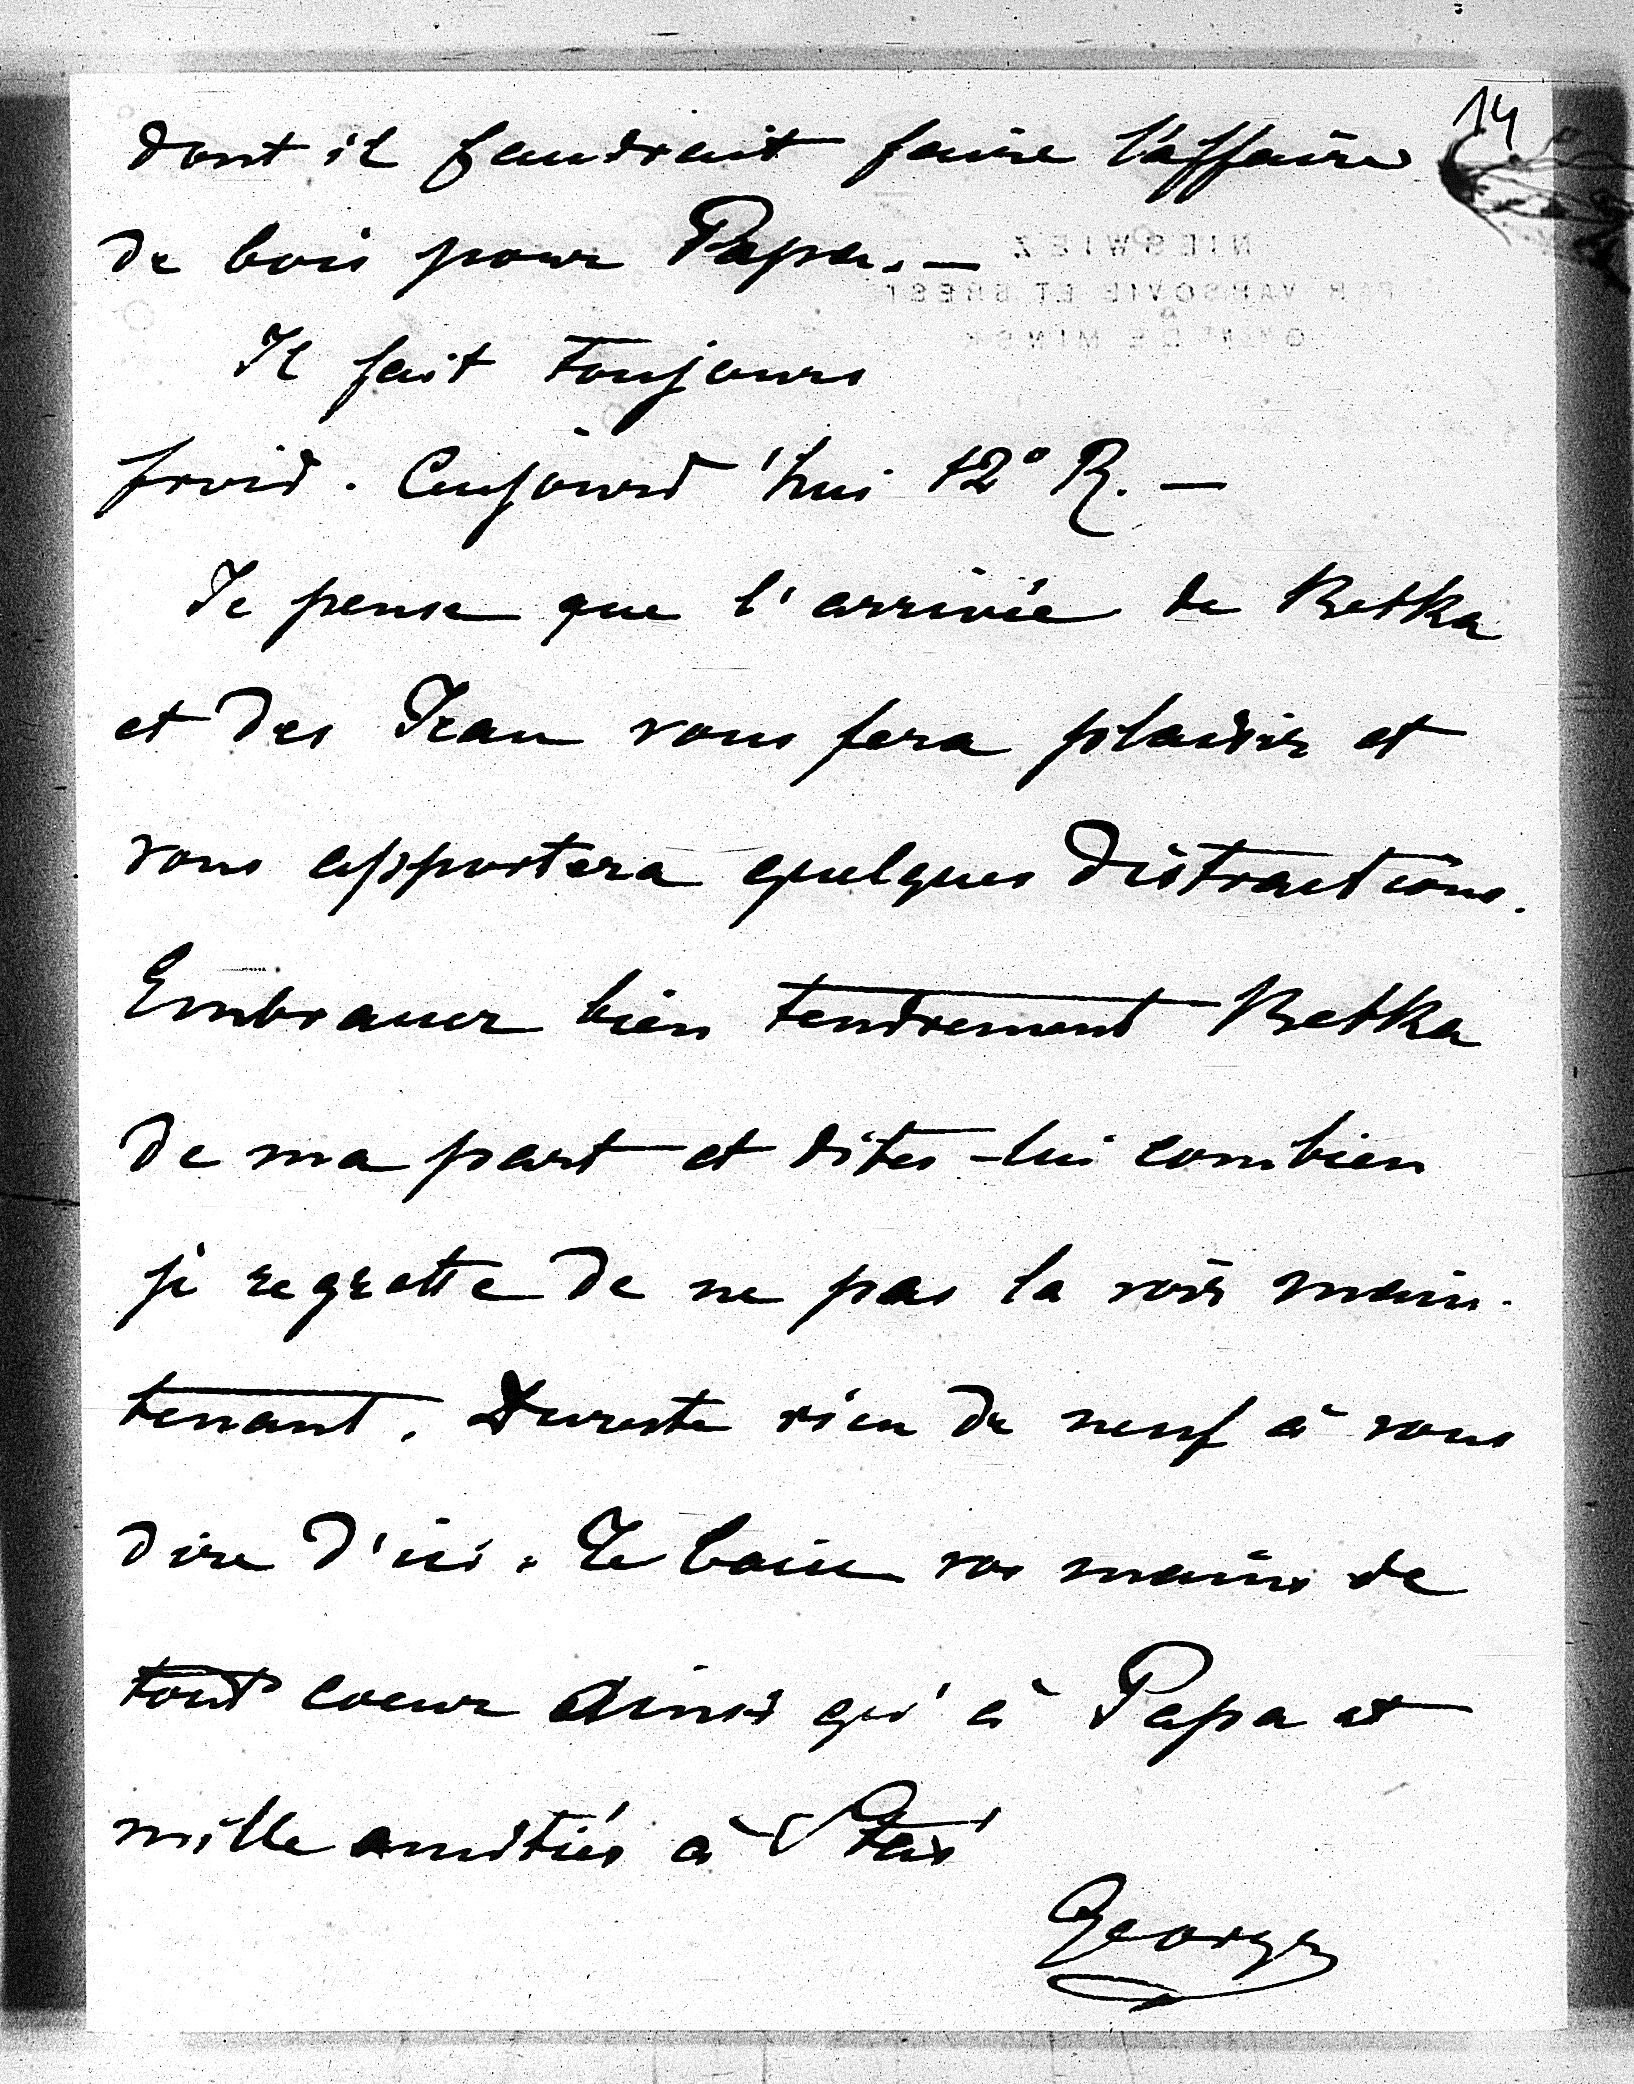 14
dont il faudrait faire l'affaire
de bois pour Papa. —
NIESWIEZ
PAR VARSOVIE ET BREST
GOUVT DE MINSK
Il fait toujours
froid. Aujourd'hui 12° R. —
Je pense que l'arrivée de Betka
et des Jean vous fera plaisir et
vous apportera quelques distractions.
Embrassez bien tendrement Betka
de ma part et dites-lui combien
je regrette de ne pas la voir main-
tenant. Dureste rien de neuf à vous
dire d'ici. Je baise vos mains de
tout coeur ainsi qu'à Papa et
mille amitiés à Staś
Georges